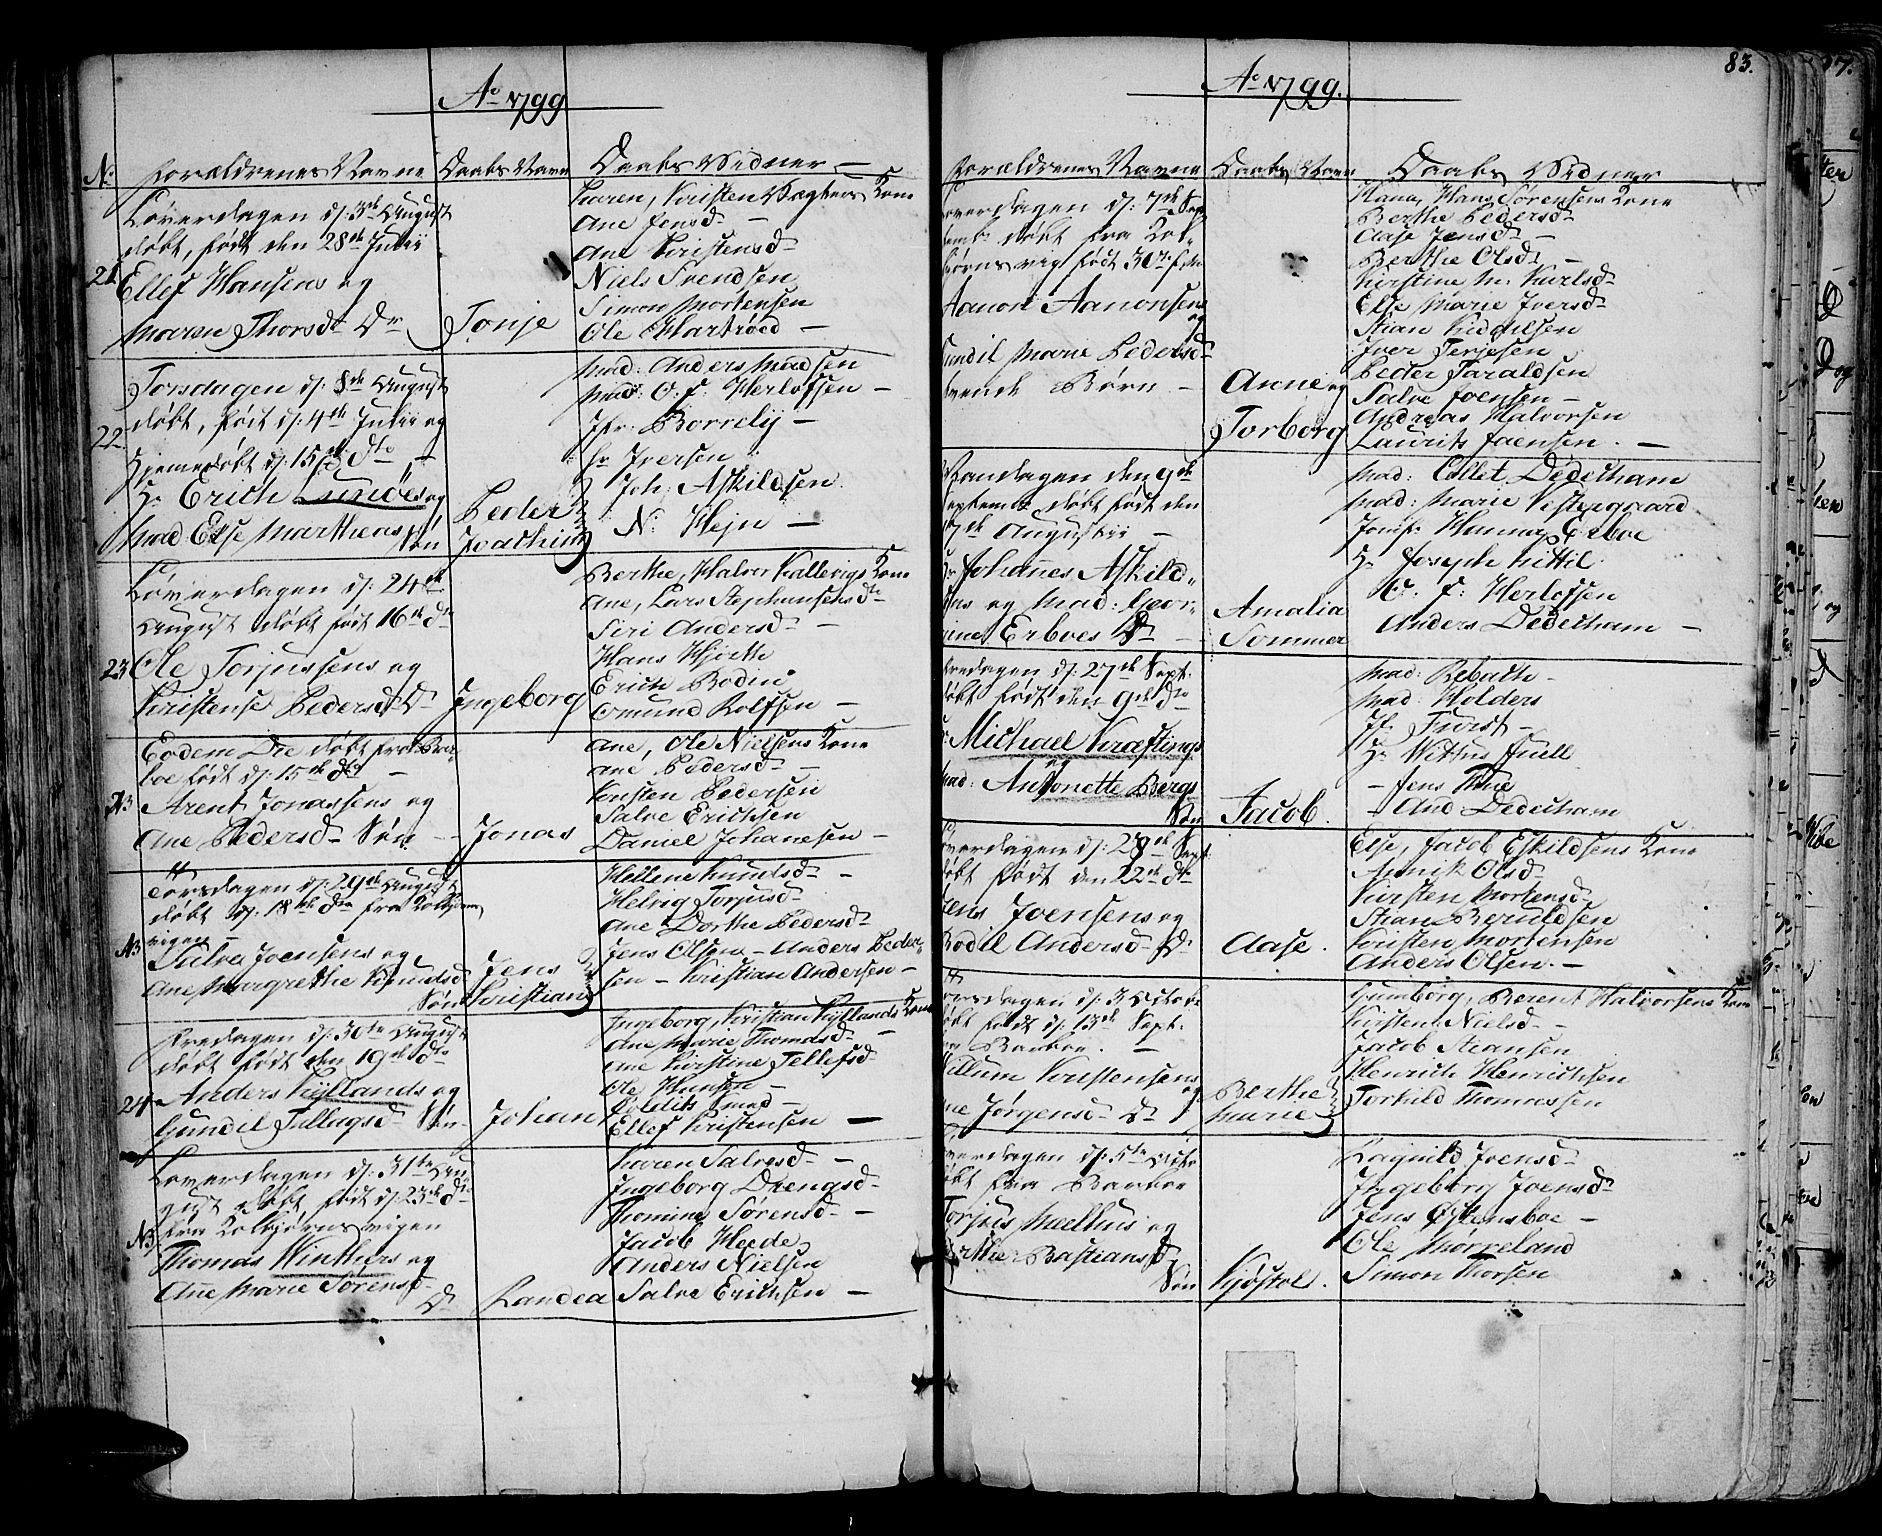 Ao 1799
No Forældrenes Navne Daabs Navn Daabs Vidner
Løverdagen d: 3de August
døbt, født den 28de Julii
21 Ellef Hansens og
Maren Thorsd. Dr. Tonje
Karen, Kristen Vægters Kone
Ane Jensd.
Ane Kirstensd.
Niels Svendsen
Simon Mortensen
Ole Hartvoed
Torsdagen d: 8de August
døbt, født d: 4de Julii og
22 Hjemedøbt d: 15de dto
Hr Erich Lunds og
Mad Else Marthens Søn Peder Joachim
Mad: Anders Madsen
Mad: O. F. Herlofsen
Jfr: Borrely
Hr Iversen
Joh: Askildsen
N: Hejn
Løverdagen d: 24de
August døbt født 16de dto
23 Ole Torjussens og
Kirstense Pedersd. Dr Ingeborg
Berthe, Halvor Kallevigs Kone
Ane, Lars Stephansens dr
Siri Andersd.
Hans Hjorth
Erich Bodin
Omund Rolfsen
Eodem Die døbt fra Bar-
boe født d: 15de dto
NB Arent Jonassens og
Ane Pedersd. Søn Jonas
Ane, Ole Nielsens Kone
Ane Pedersd.
Kirsten Pedersen
Salve Erichsen
Daniel Johanesen
Torsdagen d: 29de August
døbt d: 18de dto fra Kolbjørns
vigen
NB Salve Joensens og
Ane Margrethe Knudsd. Søn Jens Kristian
Hellene Knudsd.
Helvig Torjusd.
Ane Dorthe Pedersd.
Jens Olsen - Anders Peder-
sen - Kristian Andersen
Fredagen d: 30te August
døbt født den 19de dto
24 Anders Kyllands og
Gundel Tellagsd. Søn Johan
Ingeborg, Kristian Kyllands Kone
Ane Marie Thomasd.
Ane Kirstine Tellefsd.
Ole Hansen
Ellef Kristensen
Løverdagen d: 31te Au-
gust døbt født d: 23de dto
fra Kolbjørnsvigen
NB Thomas Winthers og
Ane Marie Sørensd. Dr Randea
Karen Salvesd.
Ingeborg Drengsd.
Thomine Sørensd.
Jacob Heede
Anders Nielsen
Salve Erichsen
83.
Ao 1799.
Forældrenes Navne Daabs Navn Daabs Vidner
Løverdagen d: 7de Sep-
temb. døbt fra Kol-
bjørnsvig født 30te f. M.
Aanon Aanonsens og
Gundil Marie Pedersd.
tvende Børn Anne og Torborg
Maria, Hans Sørensens Kone
Berthe Pedersd.
Aase Jensd.
Berthe Olsd.
Kirstine M: Karlsd.
Else Marie Iversd.
Stian Kiddelsen
Iver Terjesen
Peder Taraldsen
Salve Joensen
Andreas Halvorsen
Laurits Jaensen
Mandagen den 9de
Septemb døbt født den
7de Augustii
Hr Johannes Askild-
sens og Mad: Geor-
gine Erboes Dr Amalia Sommer
Mad: Ollet Dedecham
Mad: Marie Vestergaard
Jomfr Hanna Erboe
Hr Joseph Kittil
O. F: Herlofsen
Anders Dedecham
Fredagen d: 27de Sept.
døbt født den 9de dto
Hr Michael Kræftings
Mad: Antonette Bergs Søn Jacob.
Mad: Rebadth
Mad: Holders
Jf. Furst
Hr Wittus Juell
Jens Thue
And Dedecham
Løverdagen d: 28de Sept
døbt født den 22de dto
Jens Joensens og
Bodil Andersd. Dr Aase.
Else, Jacob Eskildsens Kone
Annik Olsd.
Kirsten Mortensd.
Stian Berulfsen
Kristen Mortensen
Anders Olsen.
Torsdagen d: 3 Octobr
døbt født d: 13de Sept.
fra Barboe.
Villum Kristensens og
Ane Jørgensd. Dr Berthe Marie
Gumborg, Berent Halvorsens Kone
Kirsten Nielsd.
Jacob Stiansen
Henrich Henrichsen
Torkild Thomassen
Løverdagen d: 5te Octo
døbt fra Barboe
Torjus Mælhus og
Berthe Bastiansd. Søn Kjøstol.
Ragnild Joensd.
Ingeborg Joensd.
Jens Østensboe
Ole Mørreland
Simon Thorsen